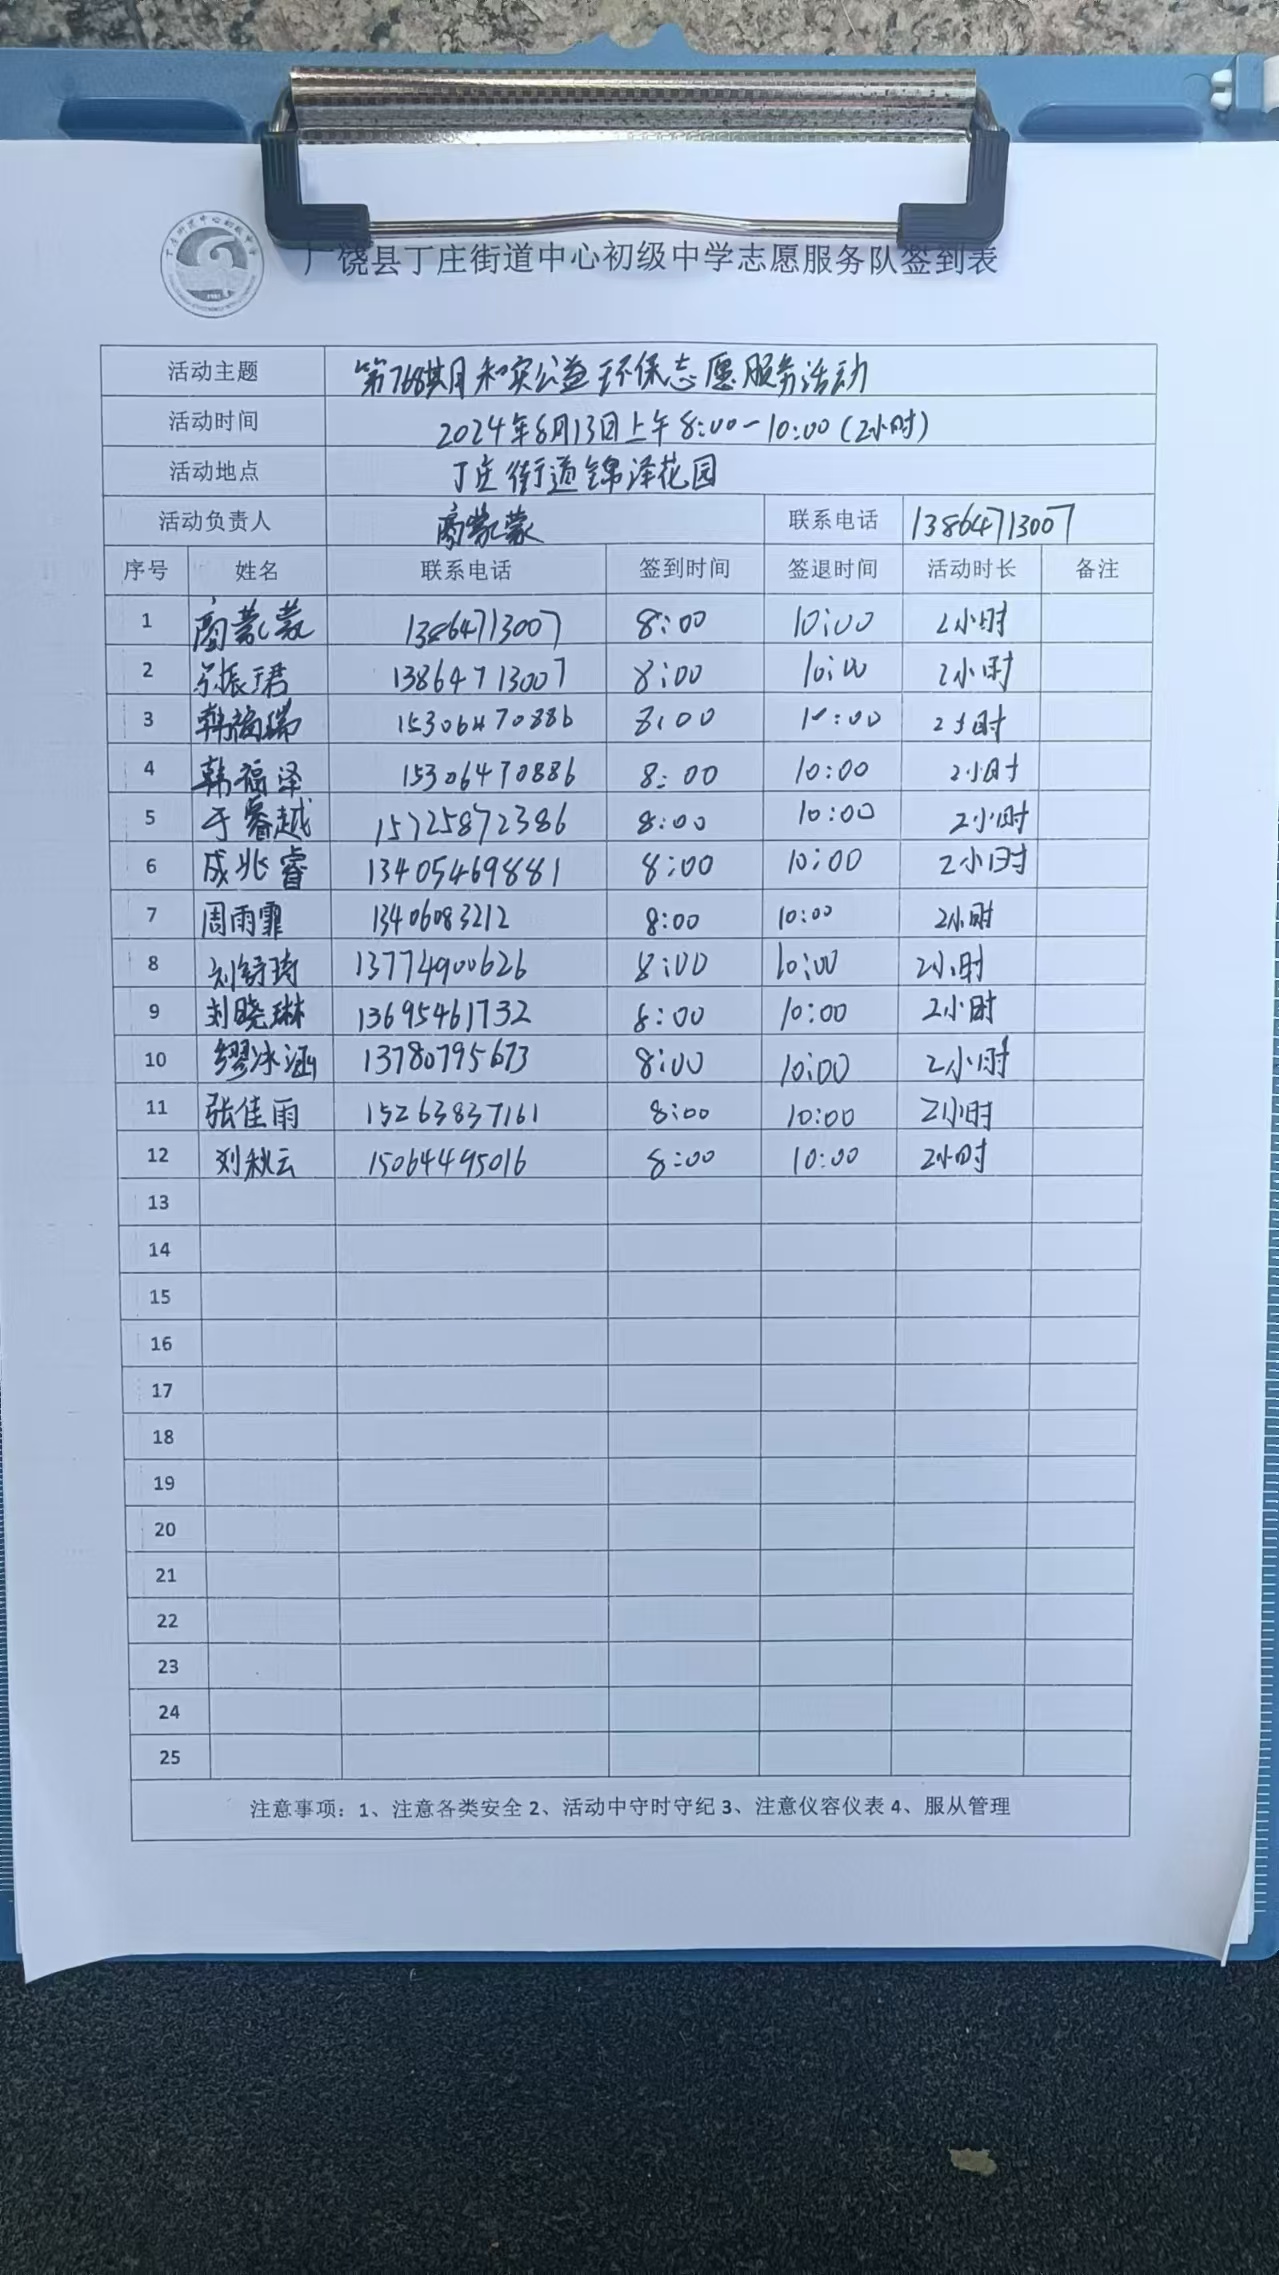 广饶县丁庄街道中心初级中学志愿服务队签到表
活动主题 第768期月和实公益环保志愿服务活动
活动时间 2024年8月13日上午8:00-10:00(2小时)
活动地点 丁庄街道锦泽花园
活动负责人 商蒙蒙 联系电话 13864713007
序号 姓名 联系电话 签到时间 签退时间 活动时长 备注
1 商蒙蒙 13864713007 8:00 10:00 2小时
2 振珺 13864713007 8:00 10:00 2小时
3 韩福瑞 15306470886 8:00 10:00 2小时
4 韩福泽 15306470886 8:00 10:00 2小时
5 于睿越 15725872386 8:00 10:00 2小时
6 成兆睿 13405469881 8:00 10:00 2小时
7 周雨霏 13406083212 8:00 10:00 2小时
8 刘舒琦 13774900626 8:00 10:00 2小时
9 刘晓琳 13695461732 8:00 10:00 2小时
10 缪冰涵 13780795673 8:00 10:00 2小时
11 张佳雨 15263837161 8:00 10:00 2小时
12 刘秋云 15064495016 8:00 10:00 2小时
13
14
15
16
17
18
19
20
21
22
23
24
25
注意事项：1、注意各类安全 2、活动中守时守纪 3、注意仪容仪表 4、服从管理